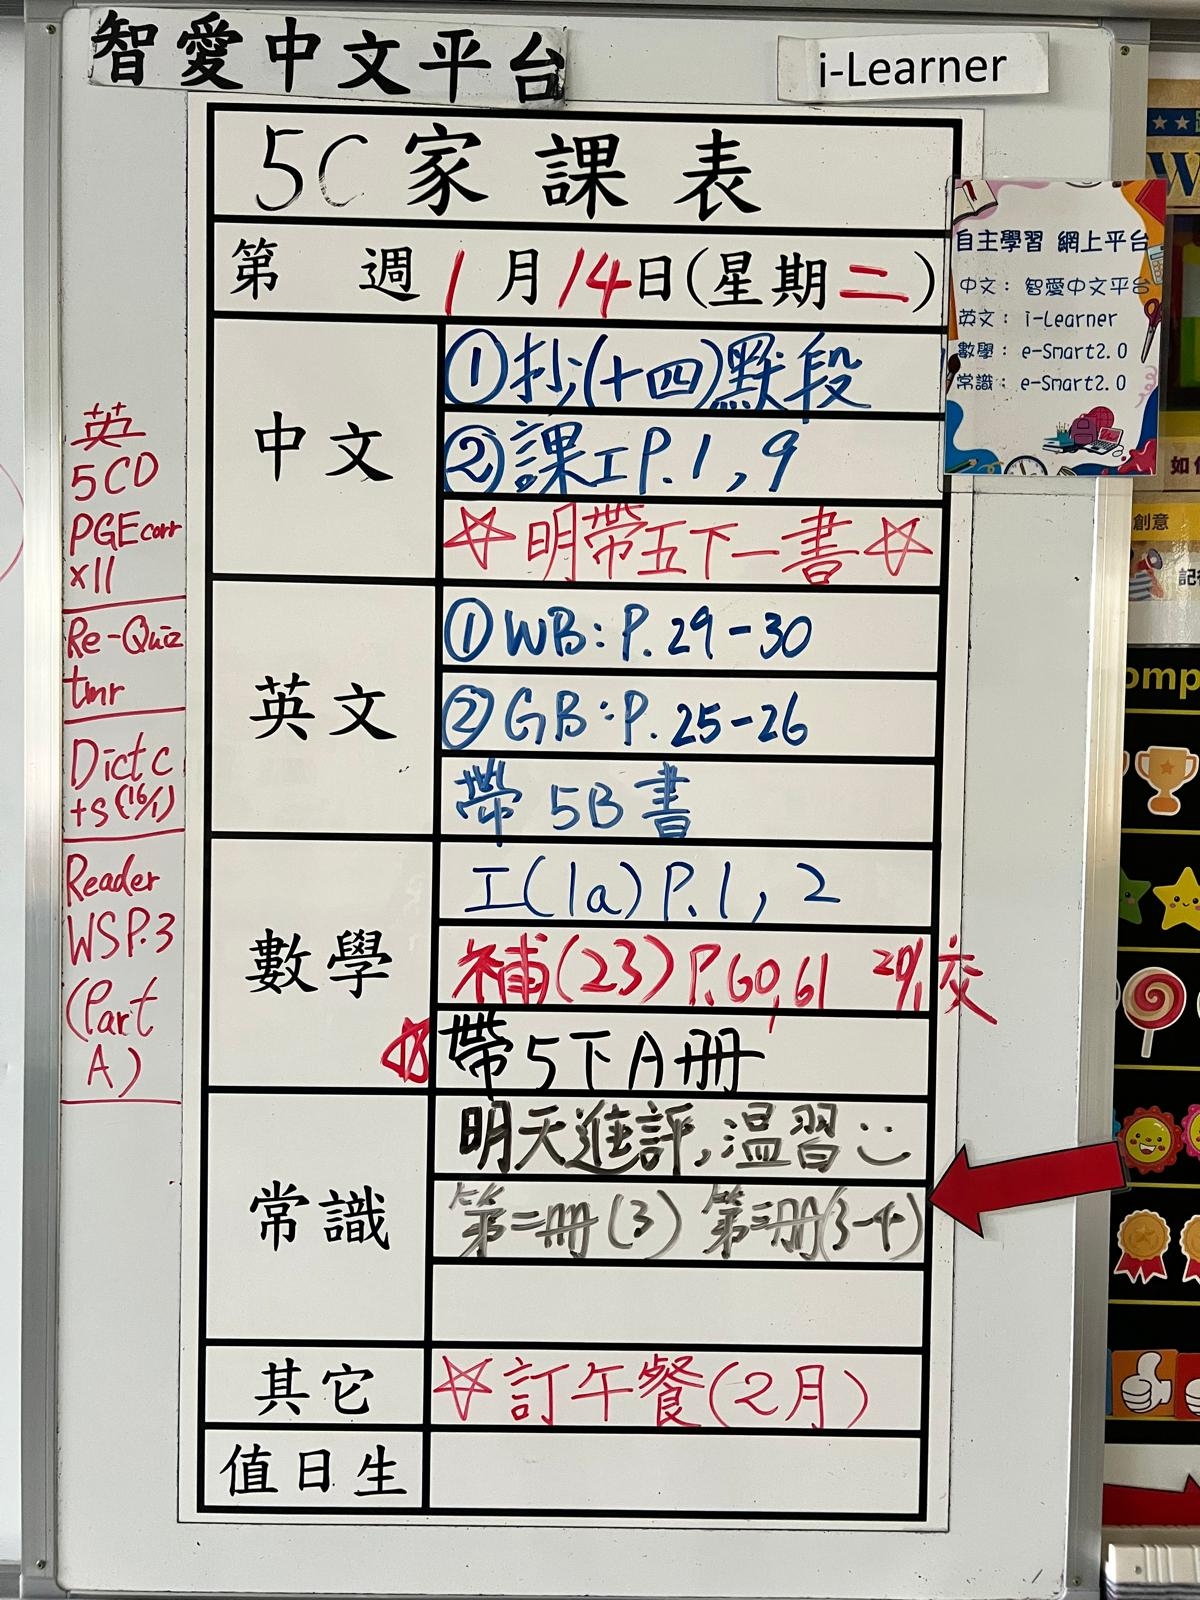 智愛中文平台
i-Learner
5C家課表
第 週1月14日(星期二)
中文
①抄(十四)默段
②課工P.1,9
☆明帶五下一書☆
英文
①WB:P.29-30
②GB:P.25-26
帶5B書
數學
工(1a)P.1,2
補(23)P.60,61 交
帶5下A册
常識
明天進評,温習
第二册(3) 第三册
其它
☆訂午餐(2月)
值日生
英
5CD
PGE corr
x11
Re-Quiz
tmr
Dict c
+s(16/1)
Reader
WSP.3
(Part
A)
自主學習 網上平台
中文: 智愛中文平台
英文: i-Learner
數學: e-Smart2.0
常識: e-Smart2.0
W
如
創意
記
omp